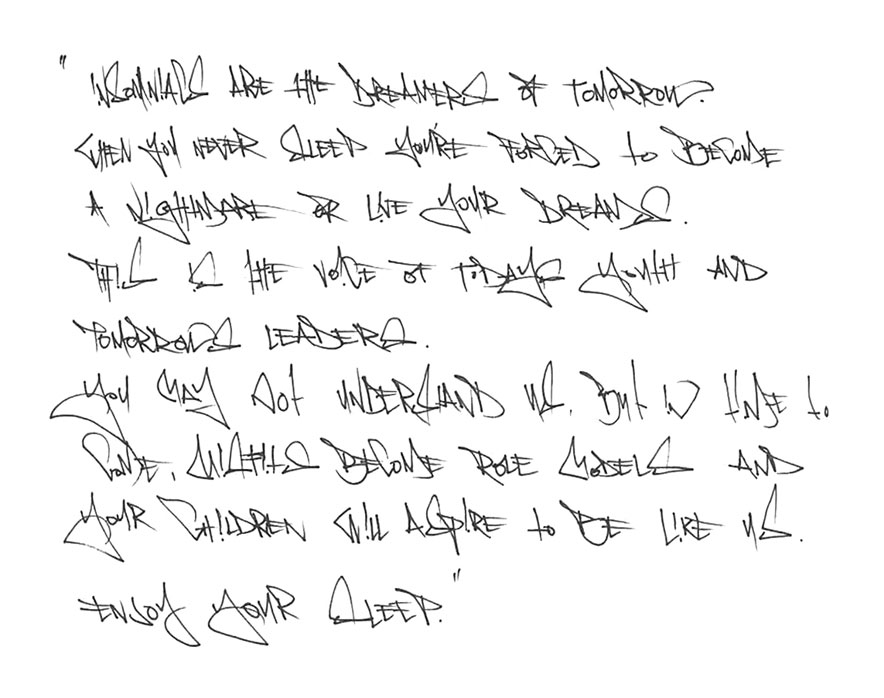 "INSOMNIACS ARE THE DREAMERS OF TOMORROW.
WHEN YOU NEVER SLEEP YOU'RE FORCED to BECOME
A NIGHTMARE OR LIVE YOUR DREAMS.
THIS IS THE VOICE OF TODAYS YOUTH AND
TOMORROWS LEADERS.
YOU MAY NOT UNDERSTAND US, BUT IN TIME to
COME, MISFITS BECOME ROLE MODELS AND
YOUR CHILDREN WILL ASPIRE to BE LIKE US.
ENJOY YOUR SLEEP."